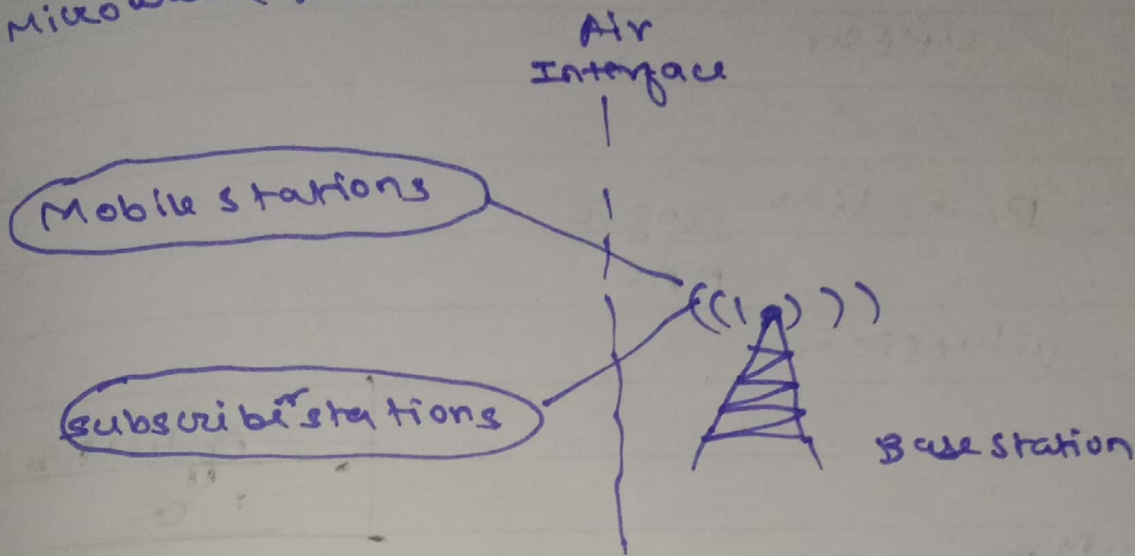 Air
Interface
Mobile stations
subscriber stations
Base station